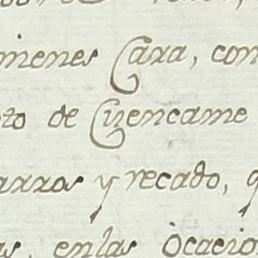 imenes Cara, con
to de Cuencame
arros y recado, q
as, en las Ocacio